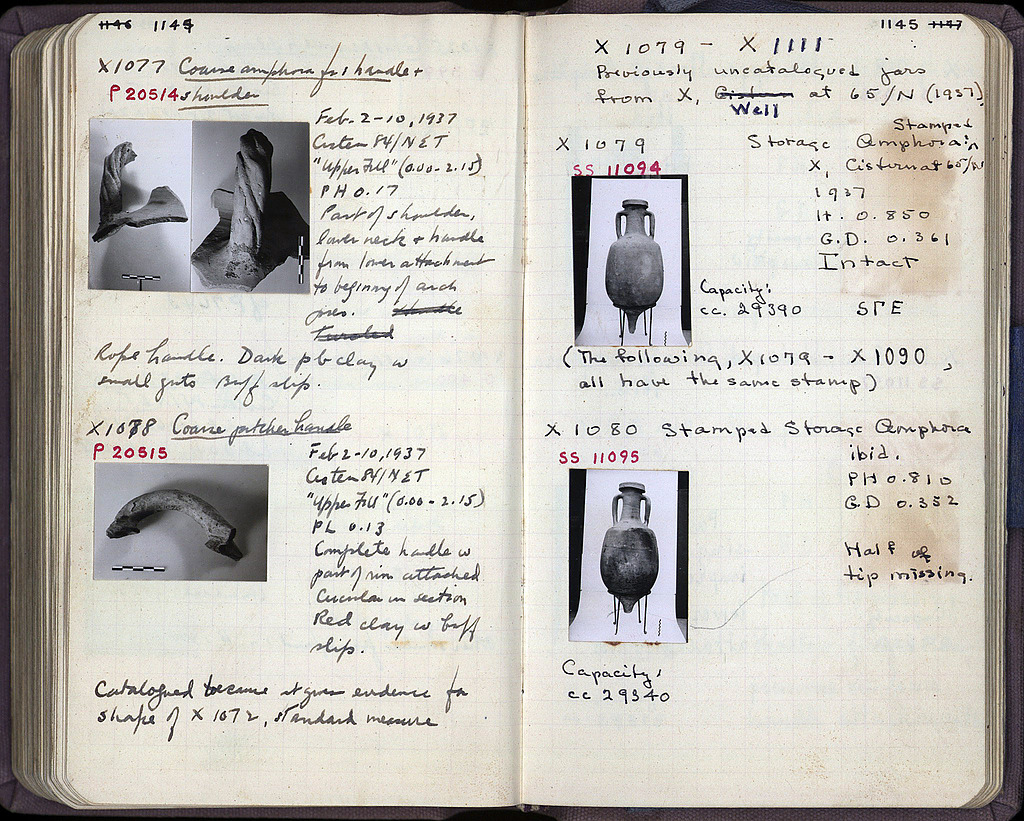 1146 1144
X1077 Coarse amphora fr, handle +
P 20514 shoulder
Feb. 2-10, 1937
Cistern 84/NET
"Upper Fill" (0.00-2.15)
PH 0.17
Part of shoulder,
lower neck + handle
from lower attachment
to beginning of arch
pres. Handle
Twisted
Rope handle. Dark pb clay w
small grits Buff slip.
X1078 Coarse pitcher handle
P 20515
Feb 2-10, 1937
Cistern 84/NET
"Upper Fill" (0.00-2.15)
PL 0.13
Complete handle w
part of rim attached
Circular in section
Red clay w buff
slip.
Catalogued because it gives evidence for
shape of X 1072, standard measure
1145 1147
X 1079 - X 1111
Previously uncatalogued jars
from X, Cistern at 65/N (1937).
Well
X 1079 Storage Amphora:
Stamped
SS 11094
X, Cistern at 65/N
1937
H. 0.850
G.D. 0.361
Intact
Capacity:
cc. 29390 ΣΓΕ
(The following, X1079 - X1090,
all have the same stamp)
X 1080 Stamped Storage Amphora
SS 11095
ibid.
PH 0.810
G.D 0.352
Half of
tip missing.
Capacity:
cc 29340